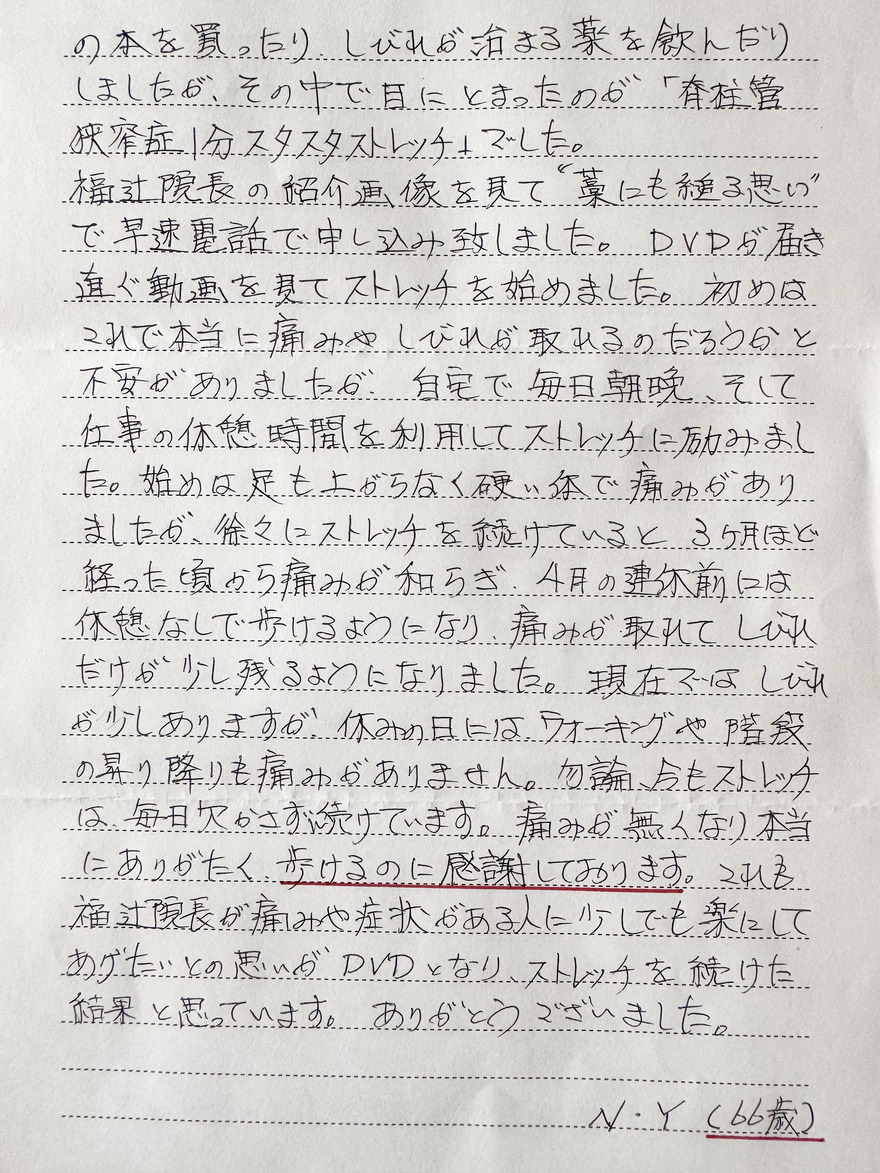 の本を買ったり、しびれが治まる薬を飲んだり
しましたが、その中で目にとまったのが「脊柱管
狭窄症1分スタスタストレッチ」でした。
福辻院長の紹介画像を見て“藁にも縋る思い”
で早速電話で申し込み致しました。DVDが届き
直ぐ動画を見てストレッチを始めました。初めは
これで本当に痛みやしびれが取れるのだろうかと
不安がありましたが、自宅で毎日朝晩、そして
仕事の休憩時間を利用してストレッチに励みまし
た。始めは足も上がらなく硬い体で痛みがあり
ましたが、徐々にストレッチを続けていると3ヶ月ほど
経った頃から痛みが和らぎ、4月の連休前には
休憩なしで歩けるようになり、痛みが取れてしびれ
だけが少し残るようになりました。現在ではしびれ
が少しありますが、休みの日には、ウォーキングや階段
の昇り降りも痛みがありません。勿論、今もストレッチ
は毎日欠かさず続けています。痛みが無くなり本当
にありがたく、歩けるのに感謝しております。これも
福辻院長が痛みや症状がある人に少しでも楽にして
あげたいとの思いがDVDとなり、ストレッチを続けた
結果と思っています。ありがとうございました。
N・Y(66歳)